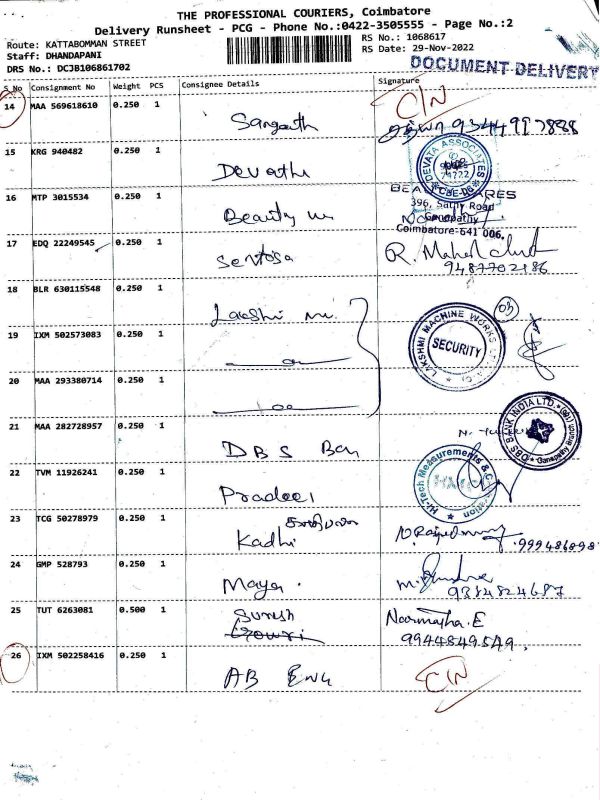 THE PROFESSIONAL COURIERS, Coimbatore
Delivery Runsheet - PCG - Phone No.:0422-3505555 - Page No.:2
Route: KATTABOMMAN STREET
Staff: DHANDAPANI
DRS No.: DCJB106861702
RS No.: 1068617
RS Date: 29-Nov-2022
DOCUMENT DELIVERY
S No Consignment No Weight PCS Consignee Details Signature
14 MAA 569618610 0.250 1 C/N
9344997888
15 KRG 940482 0.250 1 Devathi
DEVATA ASSOCIATES
16 MTP 3015534 0.250 1 Beauty
396, Sathy Road
Ganapathy
Coimbatore-641 006.
17 EDQ 22249545 0.250 1 Sentosa R. Mahesh
9487702186
18 BLR 630115548 0.250 1 Lakshi mi.
03
LAKSHMI MACHINE WORKS
SECURITY
19 IXM 502573083 0.250 1
20 MAA 293380714 0.250 1
21 MAA 282728957 0.250 1 DBS Ban
DBS BANK INDIA LTD.
Ganapathy
22 TVM 11926241 0.250 1 Pradeel
Hi-Tech Measurements &
23 TCG 50278979 0.250 1 Kadhi
24 GMP 528793 0.250 1 Maya.
9384824687
25 TUT 6263081 0.500 1 Suresh
Gowri
Noormatha.E
26 IXM 502258416 0.250 1 AB Eng C/N